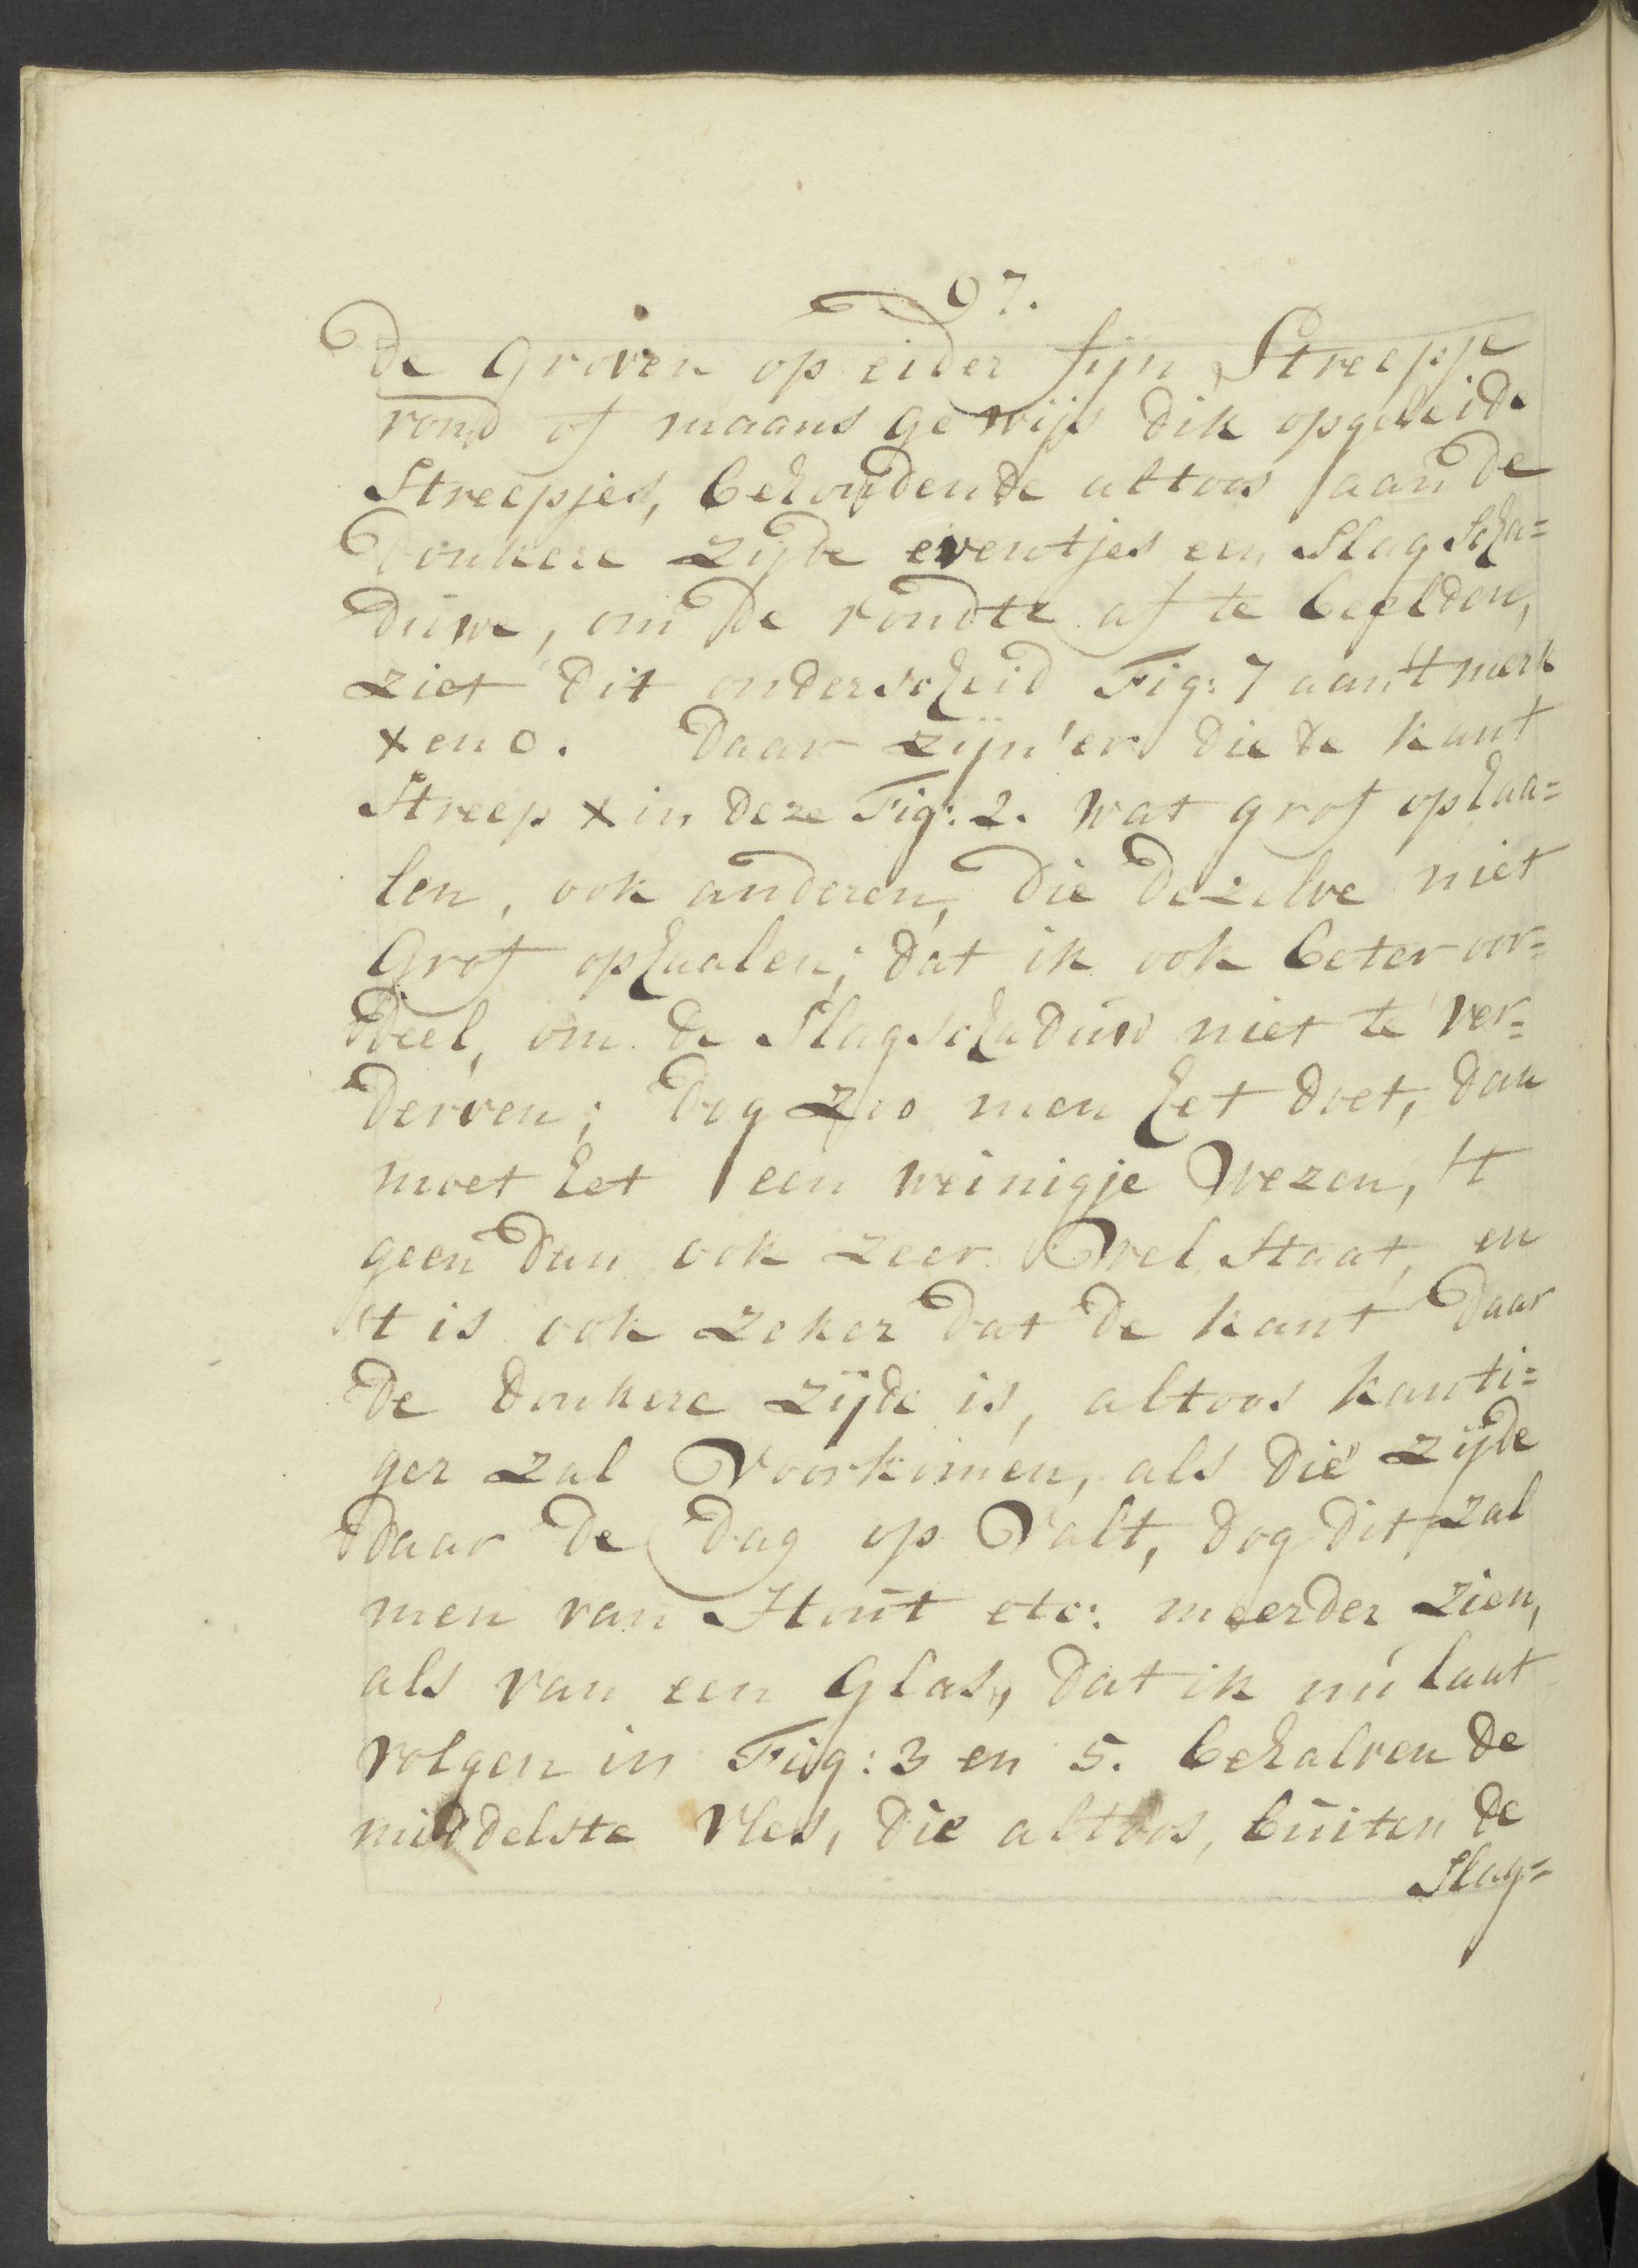 97.
de groven op eider fijn Streepje
rond of maans gewijs dik opgeleide
Streepjes, behoudende altoos aan de
donkere zijde eventjes een Slagscha=
duwe, om de rondte af te beelden,
ziet dit onderscheid Fig: 7 aan 't merk
x en o. Daar zijn 'er die de kant
Streep x in deze Fig: 2. wat grof ophaa=
len, ook anderen, die dezelve niet
grof ophaalen; dat ik ook beter oor=
deel, om de Slagschaduw niet te ver=
derven; dog zoo men het doet, dan
moet het een weinigje Wezen, 't
geen dan ook zeer Wel Staat, en
't is ook zeker dat de kant daar
de donkere zijde is, altoos kanti=
ger zal Voorkomen, als die zijde
daar de Dag op Valt, dog dit zal
men van Hout etc: meerder zien,
als van een Glas, dat ik nu laat
volgen in Fig: 3 en 5. behalven de
middelste Vles, die altoos, buiten de
Slag=